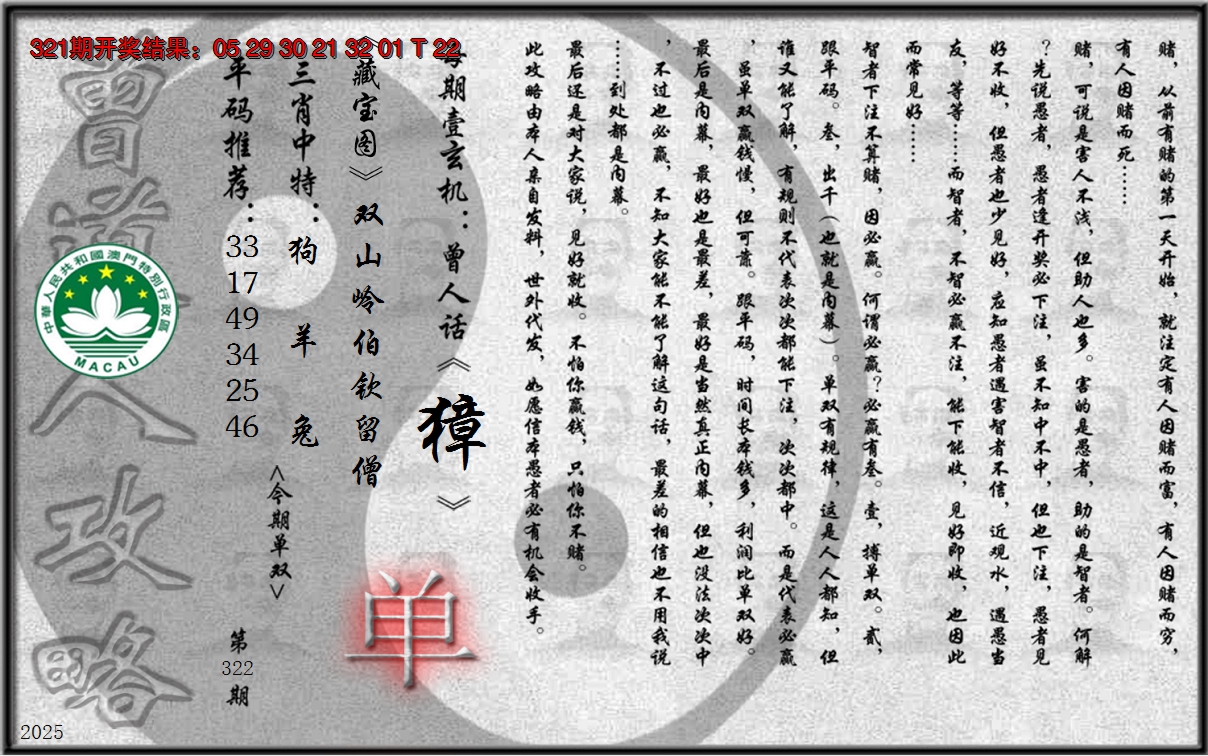 321期开奖结果：05 29 30 21 32 01 T 22
赌，从前有赌的第一天开始，就注定有人因赌而富，有人因赌而穷，
有人因赌而死……
赌，可说是害人不浅，但助人也多。害的是愚者，助的是智者。何解
？先说愚者，愚者逢开奖必下注，虽不知中不中，但也下注，愚者见
好不收，但愚者也少见好，应知愚者遇害智者不信，近观水，遇愚当
友，等等……而智者，不智必赢不注，能下能收，见好即收，也因此
而常见好……
智者下注不算赌，因必赢。何谓必赢？必赢有叁。壹，搏单双。贰，
跟平码。叁，出千（也就是内幕）。单双有规律，这是人人都知，但
谁又能了解，有规则不代表次次都能下注，次次都中。而是代表必赢
，虽单双赢钱慢，但可靠。跟平码，时间长本钱多，利润比单双好。
最后是内幕，最好也是最差，最好是当然真正内幕，但也没法次次中
，不过也必赢，不知大家能不能了解这句话，最差的相信也不用我说
……到处都是内幕。
最后还是对大家说，见好就收。不怕你赢钱，只怕你不赌。
此攻略由本人亲自发料，世外代发，如愿信本愚者必有机会收手。
每期壹玄机：曾人话《獐》
《藏宝图》双山岭伯钦留僧
三肖中特：狗 羊 兔
平码推荐：33 17 49 34 25 46
<今期单双>
单
第322期
曾道人攻略
中華人民共和國澳門特別行政區
MACAU
2025